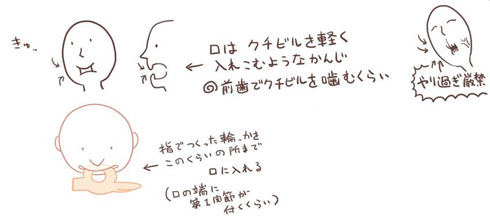 きゅっ
口は クチビルを軽く
入れこむようなかんじ
◎前歯でクチビルを噛むくらい
やり過ぎ厳禁
指でつくった輪っかを
このくらいの所まで
口に入れる
(口の端に
第1関節が
付くくらい)